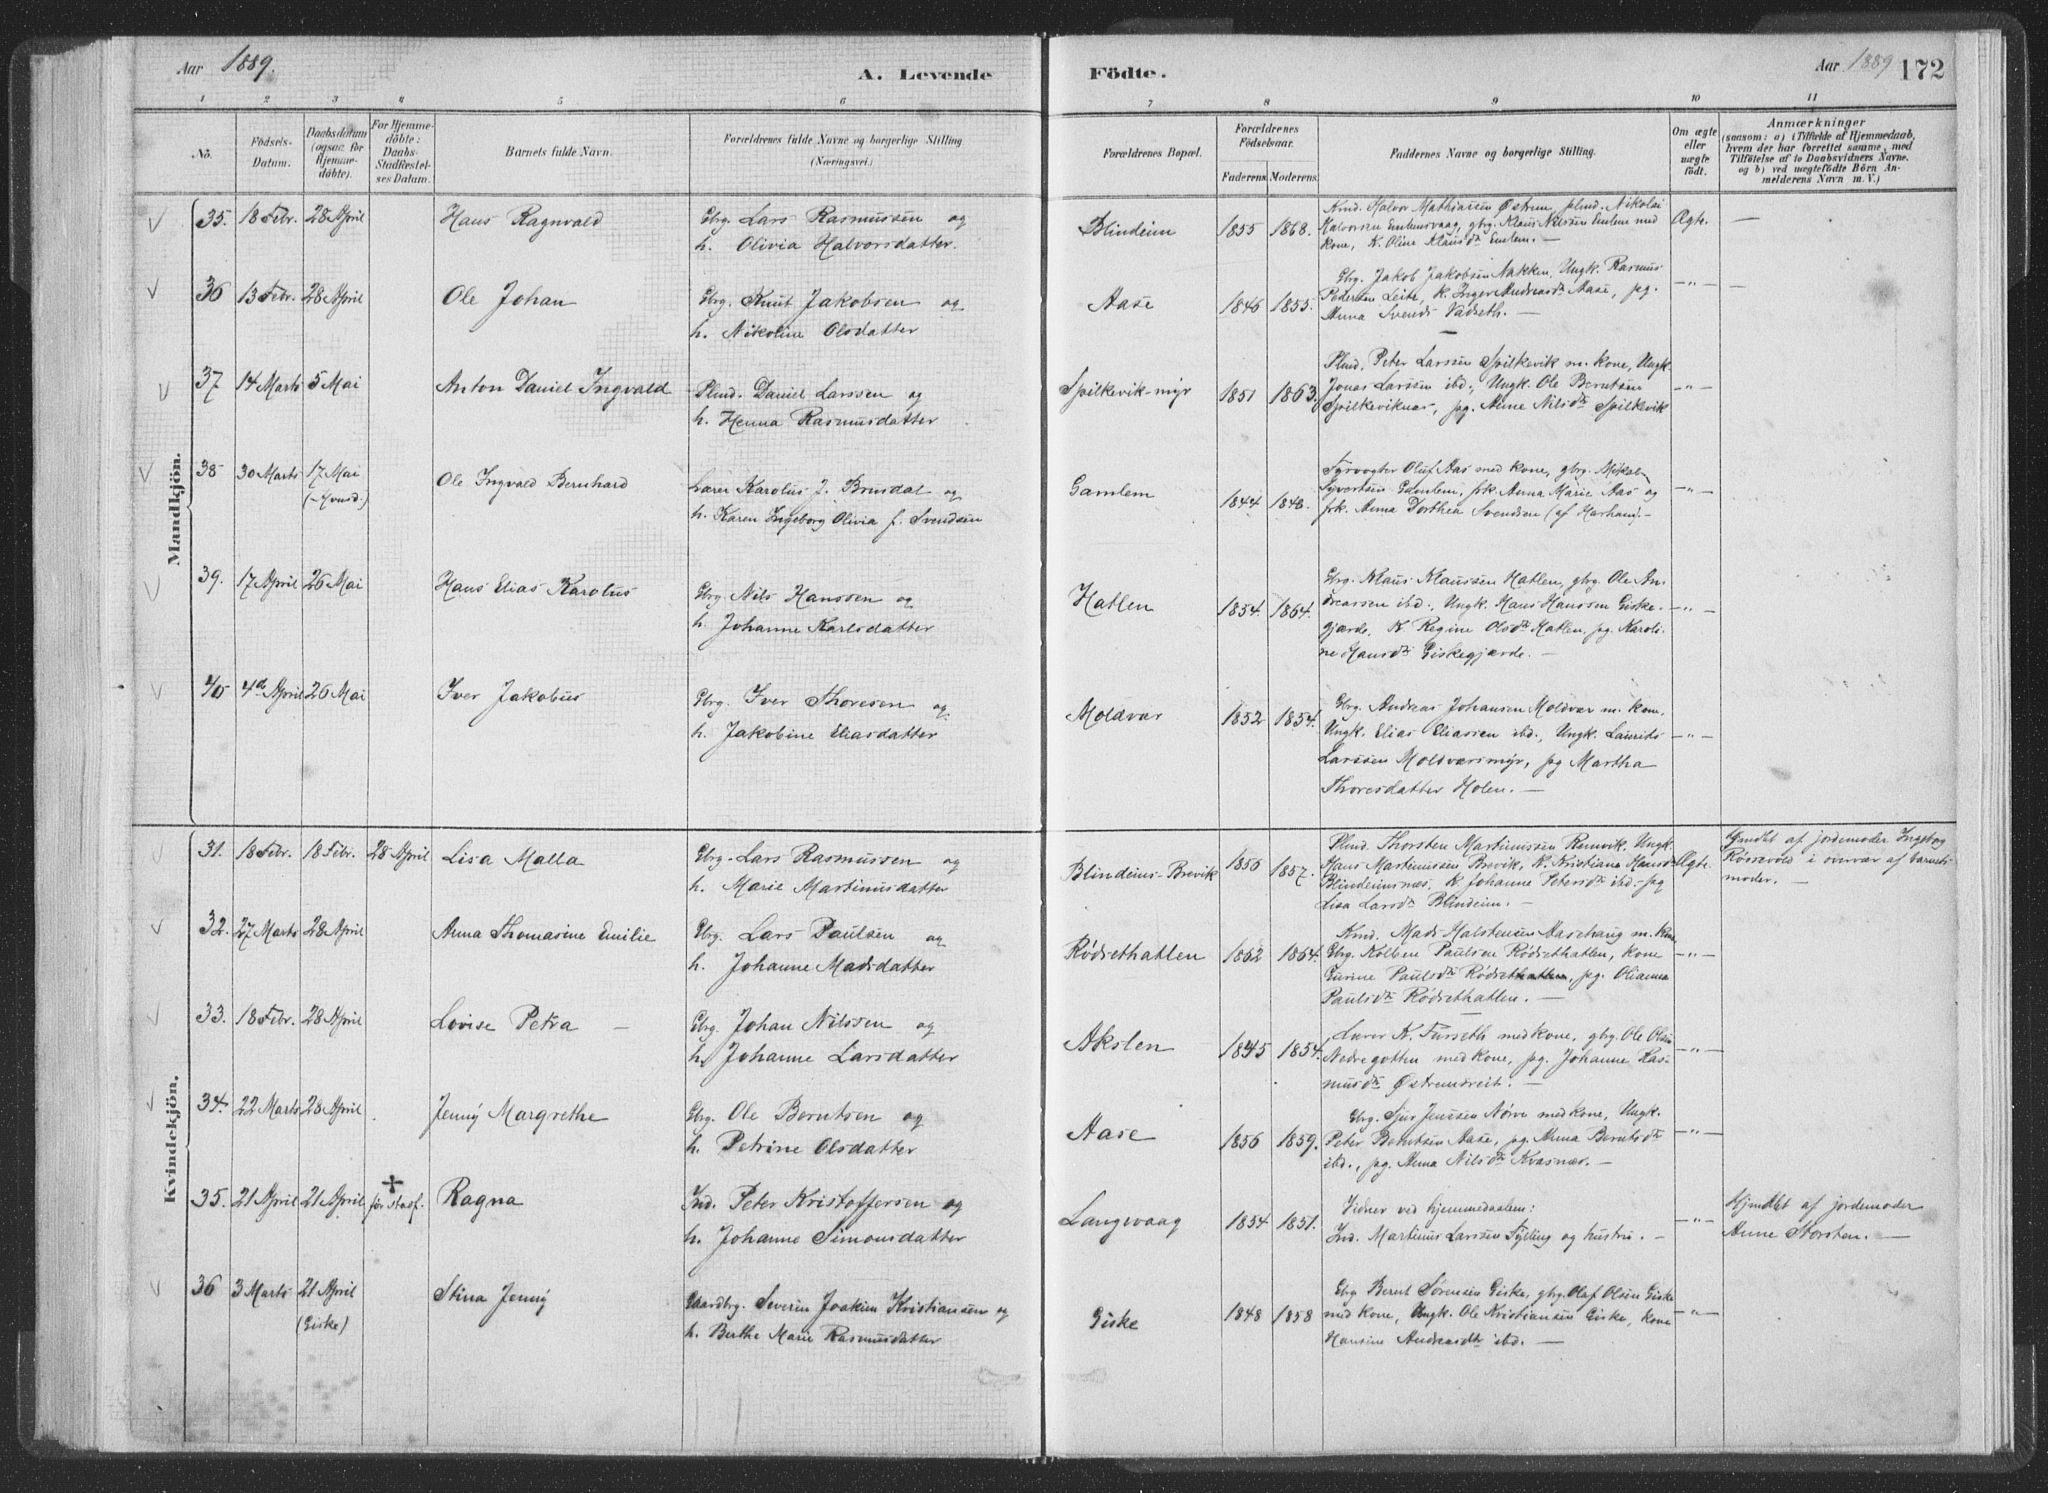 Aar 1889.
A. Levende
Födte.
Aar 1889 172
1 2 3 4 5 6 7 8 9 10 11
No.
Födsels-Datum.
Daabsdatum (ogsaa for Hjemmedöbte).
For Hjemmedöbte: Daabs-Stadfæstelses Datum.
Barnets fulde Navn.
Forældrenes fulde Navne og borgerlige Stilling (Næringsvei.)
Forældrenes Bopæl.
Forældrenes Födselsaar.
Faderens. Moderens.
Faddernes Navne og borgerlige Stilling.
Om ægte eller uægte födt.
Anmærkninger (saasom: a) i Tilfælde af Hjemmedaab, hvem der har forrettet samme, med Tilföielse af to Daabsvidners Navne. og b) ved uægtefödte Börn Anmelderens Navn m. V.)
Mandkjön.
35. 18 Febr. 28 April Hans Ragnvald Gbrg. Lars Rasmussen og
h. Olivia Halvorsdatter.
Blindeim 1855 1868.
Kmd. Halvor Mathiassen Østrem, plmd. Nikolai
Halvorsen Emlemsvaag, gbrg. Klaus Nilsen Emlem med
kone, K. Oline Klausdtr Emlem. —
Ægte. —
36 13 Febr. 28 April Ole Johan Gbrg. Knut Jakobsen og
h. Nikoline Olsdatter
Aase 1846 1855.
Gbrg. Jakob Jakobsen Nakken, Ungk. Rasmus
Pedersen Leite, K. Inger Andreasdtr Aase, pg.
Anna Svends Vadseth. —
—"— —
37 14 Marts 5 Mai Anton Daniel Ingvald Plmd. Daniel Larssen og
h. Henna Rasmusdatter
Spilkevik-myr 1851 1863.
Plmd. Peter Larssen Spilkevik m. kone, Ungk.
Jonas Larssen ibd., Ungk. Ole Berntsen
Spilkeviknæs, pg. Anne Nilsdtr Spilkevik
—"—
38 30 Marts 17 Mai Ole Ingvald Bernhard Lærer Karolus J. Brusdal og
h. Karen Ingeborg Olivia f. Svendsen
Gamlem 1844 1848.
Fyrvogter Oluf Aas med kone, gbrg. Mikal
Syvertsen Gamlem, frk. Anna Marie Aas og
frk. Anna Dorthea Svendsen (af Harham). —
—"—
39. 17 April 26 Mai Hans Elias Karolus Gbrg. Nils Hanssen og
h. Johanne Karlsdatter
Hatlen 1854. 1864.
Gbrg. Klaus Klaussen Hatlen, gbrg. Ole An-
dreassen ibd., Ungk. Hans Hanssen Giske-
gjærde, K. Regine Olsdtr Hatlen, pg. Karoli-
ne Hansdtr Giskegjærde. —
—"—
40 4de April 26 Mai Iver Jakobus Gbrg. Iver Thoresen og
h. Jakobine Eliasdatter
Moldvær 1852 1854.
Gbrg. Andreas Johansen Moldvær m. kone,
Ungk. Elias Eliassen ibd., Ungk. Laurits
Larssen Moldværsmyr, pg Martha
Thoresdatter Holen. —
—"—
Kvindekjön.
31. 18 Febr. 18 Febr. 28 April Lisa Malla Gbrg. Lars Rasmussen og
h. Marie Martinusdatter
Blindeims-Brevik 1856 1857.
Plmd. Thorsten Martinussen Remvik, Ungk.
Hans Martinussen Brevik, K. Kristiane Hansdtr
Blindeimsnæs, K. Johanne Petersdtr ibd. pg
Lisa Larsdtr Blindeim. —
Ægte.
Hjmdbt af jordemoder Ingebog
Røssevold i overvær af barnets
moder. —
32. 27 Marts 28 April Anna Thomasine Emilie Gbrg. Lars Paulsen og
h. Johanne Madsdatter
Rødsethatlen 1862 1864.
Kmd. Mads Halstensen Aasehaug m. kone,
Gbrg. Kolben Paulsen Rødsethatlen, kone
Gurine Paulsdtr Rødsethatlen, pg. Olianna
Paulsdtr Rødsethatlen. —
—"—
33. 18 Febr. 28 April Lovise Petra — Gbrg. Johan Nilssen og
h. Johanne Larsdatter
Akslen 1845 1854.
Lærer K. Furseth med kone, gbrg. Ole Olsen
Nedregotten med kone, pg. Johanne Ras-
musdtr Østremsreit. —
—"—
34. 22 Marts 28 April Jenny Margrethe Gbrg. Ole Berntsen og
h. Petrine Olsdatter
Aase 1856 1859.
Gbrg. Sjur Jenssen Nørve med kone, Ungk.
Peter Berntsen Aase, pg. Anna Berntsdtr
ibd., pg. Anna Nilsdtr Kvasnæs. —
—"—
35. 21 April 21 April + før stadf. Ragna Ind. Peter Kristoffersen og
h. Johanne Simonsdatter
Langevaag 1854 1851.
Vidner ved hjemmedaaben:
Ind. Martinus Larssen Fylling og hustru. —
—"—
Hjmdbt af jordemoder
Anne Storsten. —
36 3 Marts 21 April (Giske) Stina Jenny Gaardbrg. Severin Joakim Kristiansen og
h. Berthe Marie Rasmusdatter
Giske 1848 1858
Gbrg Bernt Sørensen Giske, gbrg. Olaf Olsen Giske
med kone, Ungk. Ole Kristiansen Giske, kone
Hansine Andreasdtr ibd. —
—"—